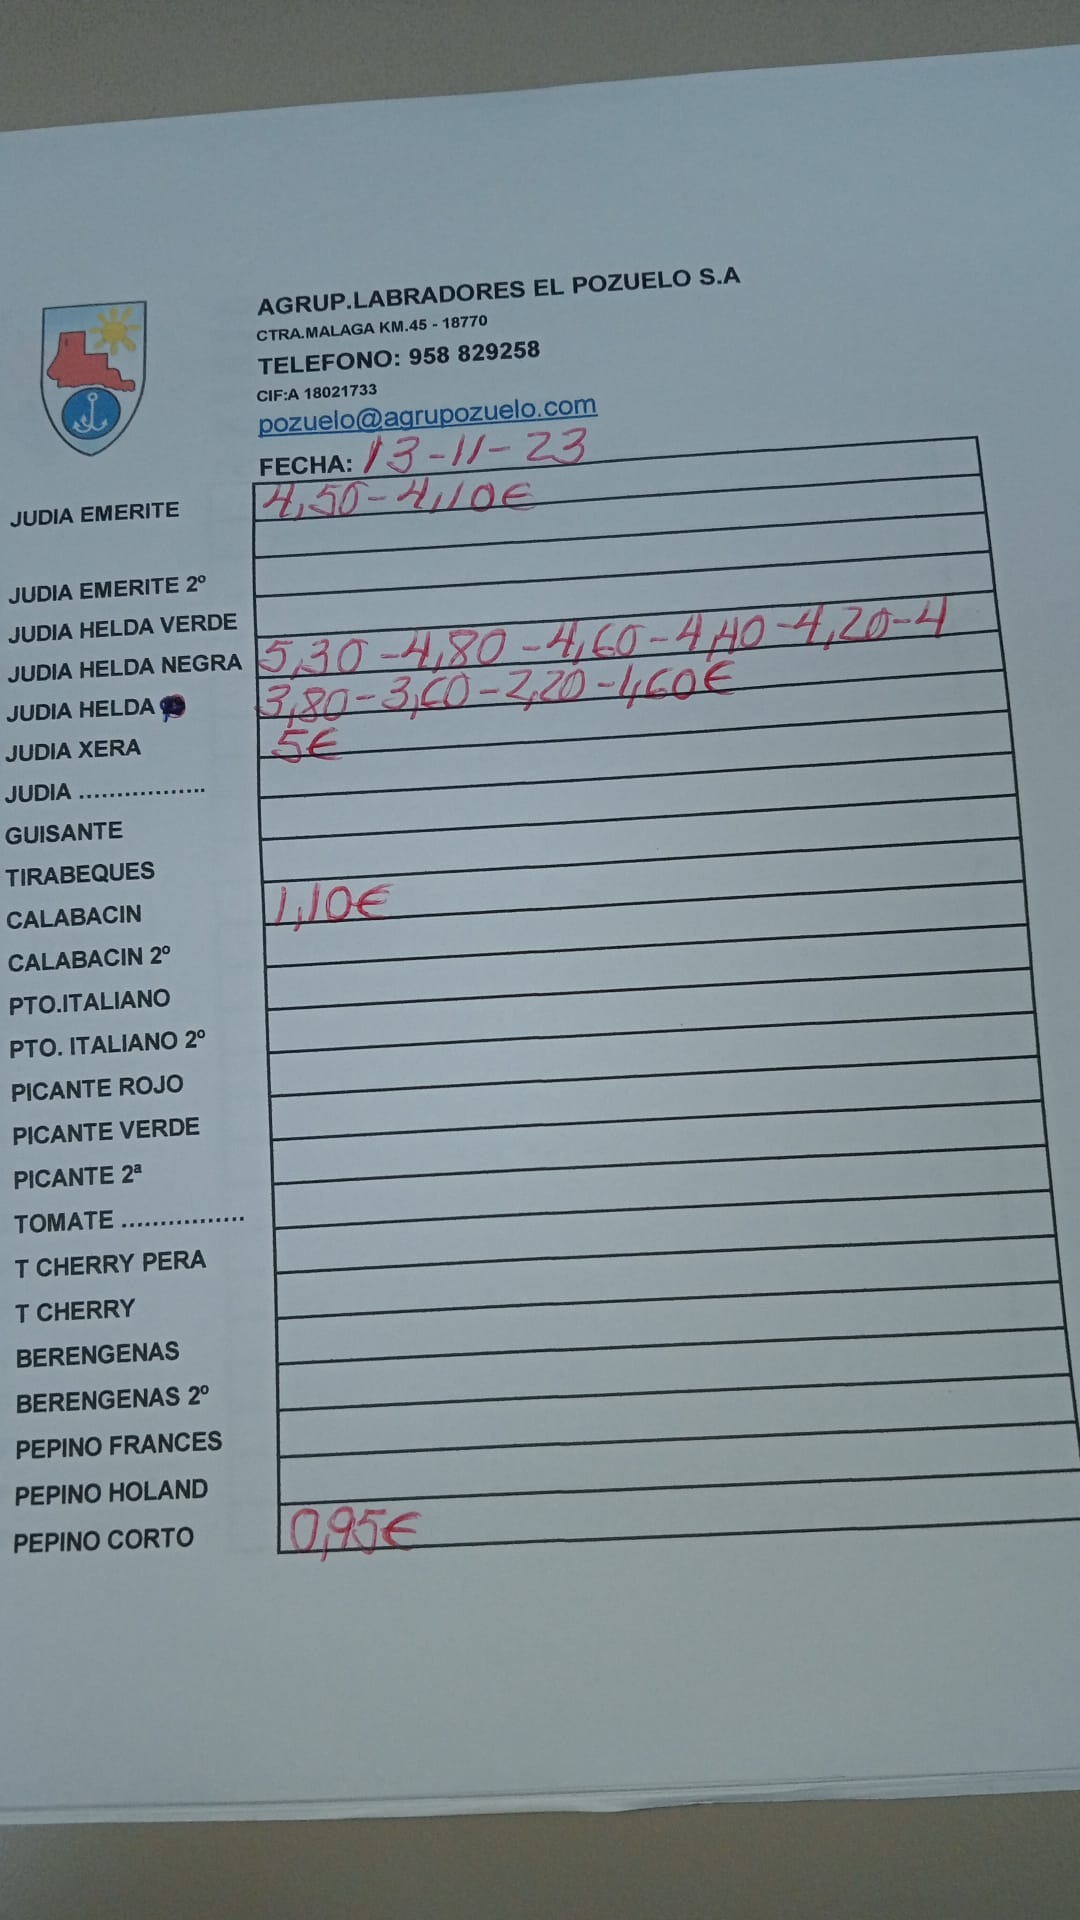 AGRUP.LABRADORES EL POZUELO S.A
CTRA.MALAGA KM.45 - 18770
TELEFONO: 958 829258
CIF:A 18021733
pozuelo@agrupozuelo.com
FECHA: 13-11-23
JUDIA EMERITE 4,50-4,10€
JUDIA EMERITE 2º
JUDIA HELDA VERDE
JUDIA HELDA NEGRA 5,30-4,80-4,60-4,40-4,20-4
JUDIA HELDA 3,80-3,60-2,20-1,60€
JUDIA XERA 5€
JUDIA .................
GUISANTE
TIRABEQUES
CALABACIN 1,10€
CALABACIN 2º
PTO.ITALIANO
PTO. ITALIANO 2º
PICANTE ROJO
PICANTE VERDE
PICANTE 2ª
TOMATE ................
T CHERRY PERA
T CHERRY
BERENGENAS
BERENGENAS 2º
PEPINO FRANCES
PEPINO HOLAND
PEPINO CORTO 0,95€